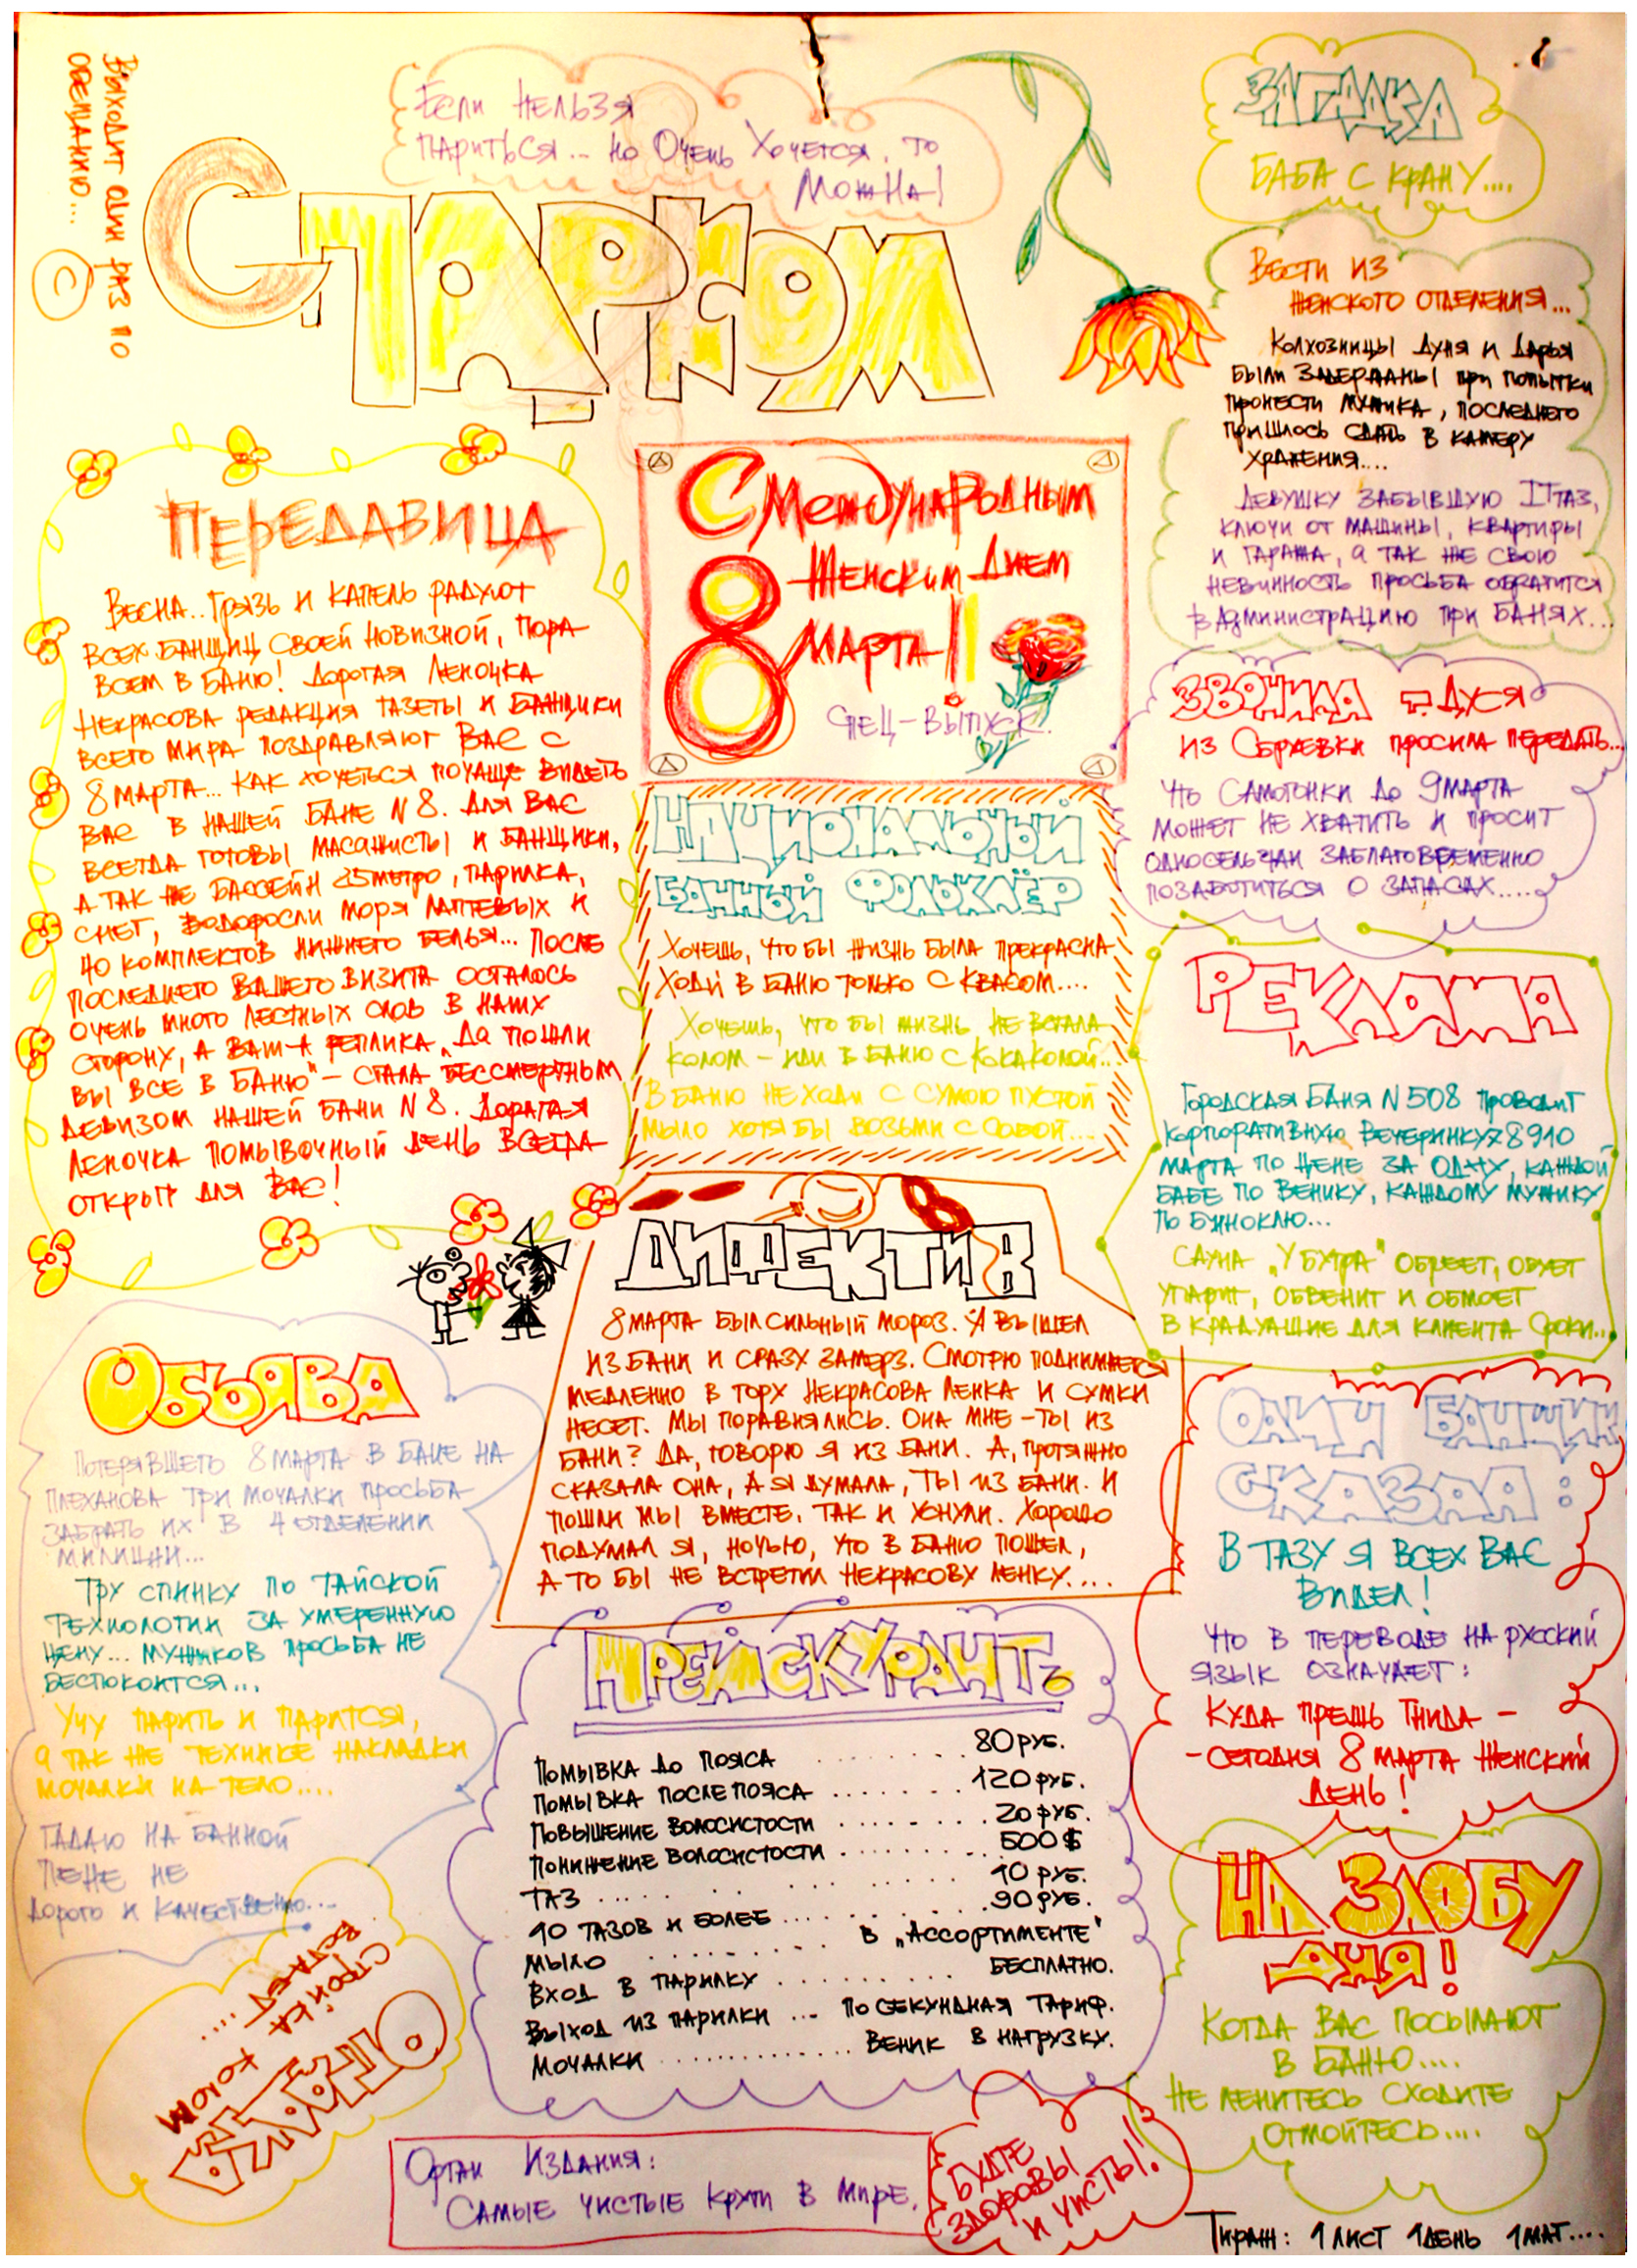 Выходит один раз по
обещанию...
С
Если нельзя
париться... но очень хочется, то
можна!
С ПАРКОМ
ЗАГАДКА
БАБА С КРАНУ....
Вести из
женского отделения...
Колхозницы Дуня и Дарья
были задержаны при попытки
пронести мужика, последнего
пришлось сдать в камеру
хранения....
Девушку забывшую таз,
ключи от машины, квартиры
и гаража, а так же свою
невинность просьба обратится
в администрацию при банях...
ПЕРЕДАВИЦА
Весна.. Грязь и капель радуют
всех банщиц своей новизной, пора
всем в баню! Дорогая Леночка
Некрасова редакция тазеты и банщики
всего мира поздравляют Вас с
8 марта... как хочеться почаще видеть
Вас в нашей бане N 8. Для Вас
всегда готовы масажисты и банщики,
а так же бассейн 25 метро, парилка,
снег, водоросли моря Лаптевых и
40 комплектов нижнего белья... После
последнего Вашего визита осталось
очень много лестных слов в наших
сторону, а Ваш-а реплика „Да пошли
вы все в баню" – стала бессмертным
девизом нашей бани N 8. Дорагая
Леночка помывочный день всегда
открыт для Вас!
С Международным
Женским Днем
8 Марта!!
спец-выпуск.
НАЦИОНАЛЬНЫЙ
БАННЫЙ ФОЛЬКЛЁР
Хочешь, что бы жизнь была прекрасна
ходи в баню только с квасом....
Хочешь, что бы жизнь не встала
колом – иди в баню с Кокаколой...
В баню не ходи с сумою пустой
мыло хотя бы возьми с собой...
ЗВОНИЛА т. Дуся
из Сбруевки просила передать...
Что самогонки до 9 марта
может не хватить и просит
односельчан заблаговременно
позаботиться о запасах....
РЕКЛАМА
Городская Баня N 508 проводит
корпоративную вечеринку 7 8 9 10
марта по цене за одну, каждой
бабе по венику, каждому мужику
по биноклю...
Сауна „У Бхтра" обреет, обует
упарит, обвенит и обмоет
в крадущие для клиента сроки...
ДИФЕКТИВ
8 марта был сильный мороз. Я вышел
из бани и сразу замерз. Смотрю поднимается
медленно в гору Некрасова Ленка и сумки
несет. Мы поравнялись. Она мне – ты из
бани? Да, говорю я из бани. А, протяжно
сказала она, а я думала, ты из бани. И
пошли мы вместе, так и уснули. Хорошо
подумал я, ночью, что в баню пошел,
а то бы не встретил Некрасову Ленку....
ОБЬЯВА
Потерявшего 8 марта в бане на
Плеханова три мочалки просьба
забрать их в 4 отделении
милиции...
Тру спинку по тайской
технологии за умеренную
цену... мужиков просьба не
беспокоится...
Учу парить и парится,
а так же технике накладки
мочалки на тело....
Гадаю на банной
пене не
дорого и качественно....
ОДИН БАНЩИК
СКАЗАЛ:
В ТАЗУ Я ВСЕХ ВАС
ВИДЕЛ!
Что в переводе на русский
язык означает:
Куда прешь гнида –
– сегодня 8 марта женский
день!
ПРЕЙСКУРАНТЪ
Помывка до пояса ........ 80 руб.
Помывка после пояса ...... 120 руб.
Повышение волосистости ....... 20 руб.
Понижение волосистости ......... 500 $
Таз ............ 10 руб.
10 тазов и более ......... 90 руб.
Мыло ......... в „Ассортименте"
Вход в парилку .......... бесплатно.
Выход из парилки ... по секундная тариф.
Мочалки ............. веник в нагрузку.
НА ЗЛОБУ
ДНЯ!
Когда Вас посылают
в баню....
Не ленитесь сходите
отмойтесь....
ОТГАДКА
колом
стройка
встаёт....
Орган Издания:
Самые чистые круги в мире.
Будте
здоровы
и чисты!
Тираж: 1 лист 1 день 1 мат....